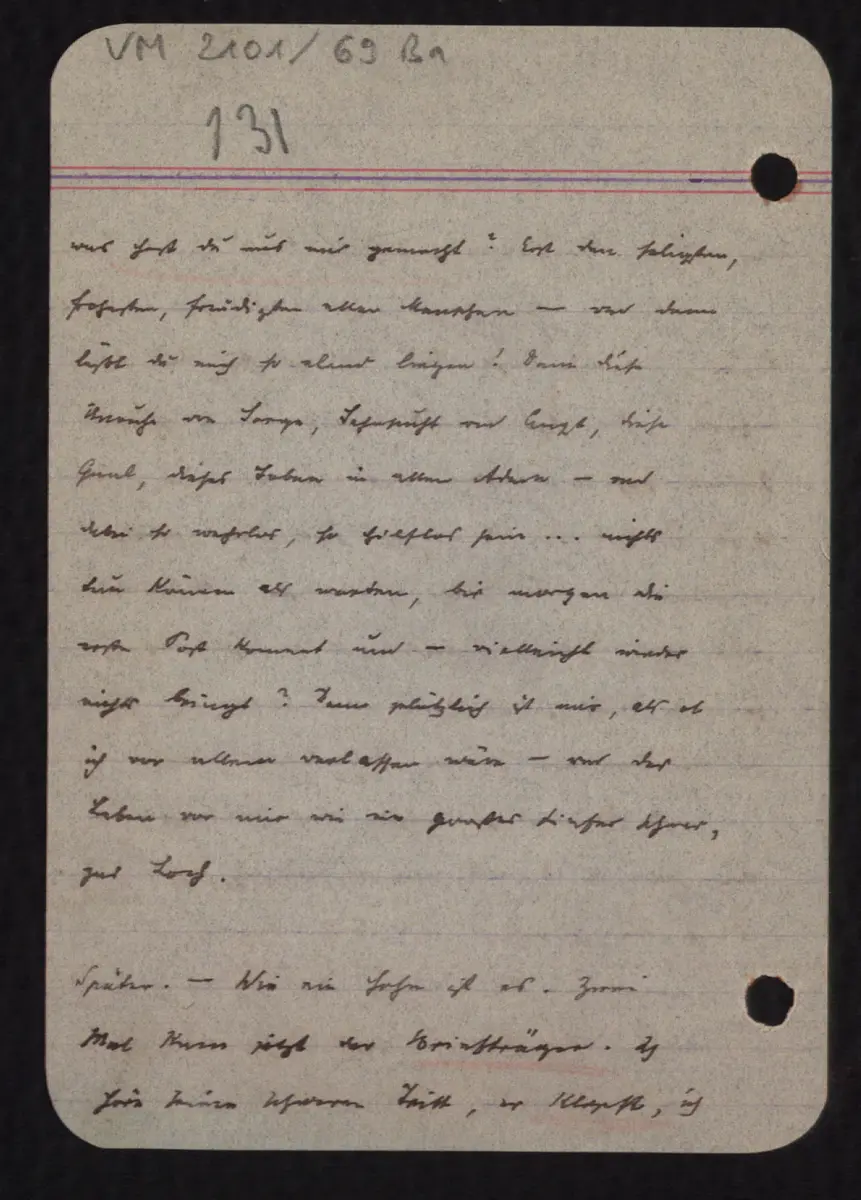 VM 2101/69 Ba
131
was hast du aus mir gemacht? Erst den seligsten,
frohesten, freudigsten aller Menschen — und dann
läßt du mich so elend liegen! Denn diese
Unruhe von Sorge, Sehnsucht und Angst, diese
Qual, dieses Beben in allen Adern — und
dabei so wehrlos, so hilflos sein ... nichts
tun können als warten, bis morgen die
erste Post kommt und — vielleicht wieder
nichts bringt? Denn plötzlich ist mir, als ob
ich von allem verlassen wäre — und das
Leben vor mir wie ein großes tiefes schwar,
zes Loch.
Später. — Wie ein Hohn ist es. Zwei
Mal kam jetzt der Briefträger. Ich
höre seinen schweren Tritt, er klopft, ich